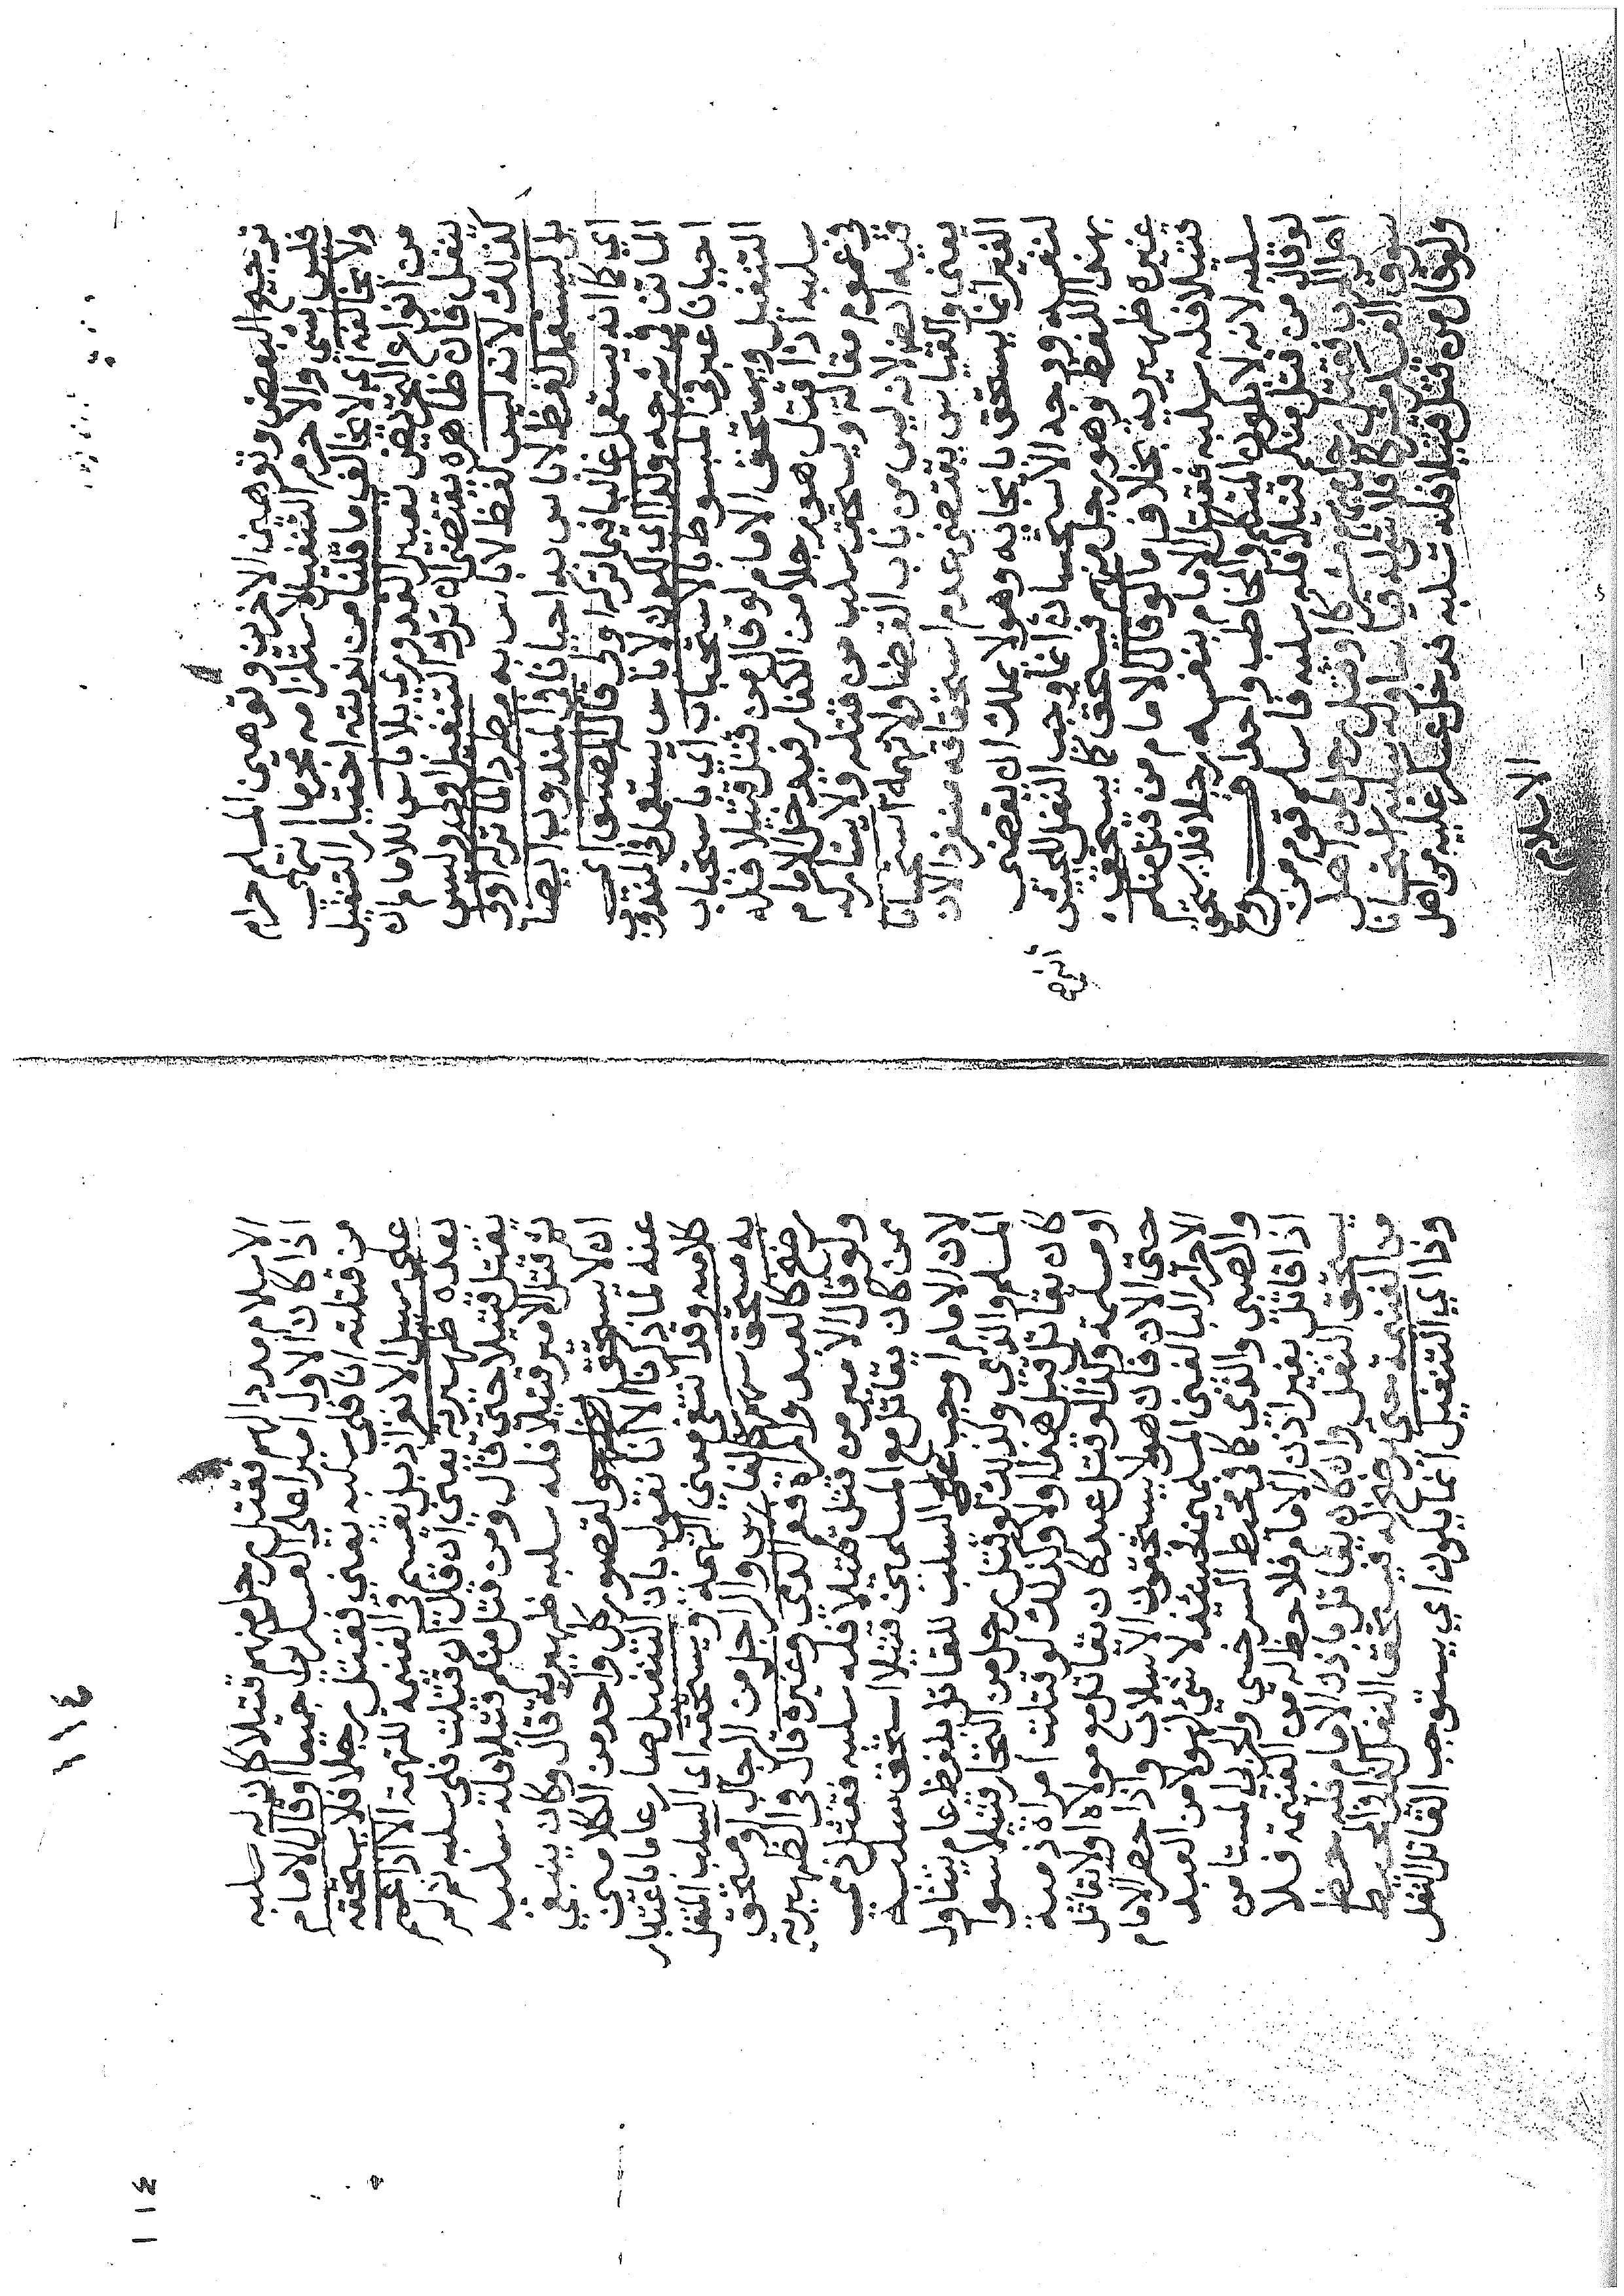 ترجيح البعض وتوهين الاخرين وتوهين المسلم حرام
فليس بشي والاحرم التنفيل لاستلزامه محرما انتهى
ولا يخالفه اي لا يخالف ما قلنا من ندبته اختيار التنفيل
من انواع التحريض تعبير القدوري بلا باس للامام ان
ينفل فان ظاهره يقتضى ان ترك التنفيل اولى وليس
كذلك لانه ليس لفظ لا باس به مطردا لما تركه اولى
بل يستعمل لفظ لا باس به احيانا في المندوب ايضا
اي كما انه يستعمل غالبا فيما تركه اولى قاله المصنف اي
الماتن في شرحه ولذا اي لكون لا باس يستعمل في المندوب
احيانا عبر في المبسوط بالاستحباب اي باستحباب
التنفيل ويستحق الامام لو قال من قتل قتيلا فله
سلبه اذا قتل هو رجلا من الكفار فيدخل الامام
في عموم مقالته ويستحق سلب من قتله ولا يشاركه
فيه احد لانه ليس من باب القضا ولا تهمة استحسانا
يعني والقياس يقتضى عدم استحقاقه منفردا لان
الغير انما يستحق بايجابه وهو لا يملك ان يقضى
لنفسه ووجه الاستحسان انه اوجب النفل للجيش
بهذا اللفظ وهو رجل منهم فيستحق كما يستحق
غيره ظهيرية بخلاف ما لو قال الامام من قتل منكم
قتيلا فله سلبه فقتل الامام بنفسه رجلا فلا يستحق
سلبه لانه لا يكون المتكلم والمخاطب واحدا فــرع
لو قال من قتل منكم قتيلا فله سلبه فاسلم قوم من
اهل الحرب فقتل رجل منهم مشركا او قتل رجل من اهل
سوق العسكر مشركا فلا شي له قياسا وله سلبه استحسانا
ولو قال من قتل قتيلا فله سلبه فدخل عسكر عليه من اهل
الاسلام
الاسلام مددا لهم فقتل رجل منهم قتيلا كان له سلبه
اذا كان الاول اميرا على العسكرين جميعا او قال الامام
من قتلته انا فلي سلبه يعني فقتل رجلا فلا يستحقه
على سبيل الانفراد بل يقسم في الغنيمة للتهمة الا اذا عمم
بعده ظهيرية يعني ان قال ان قتلت فلي سلبه ثم لم
يقتل قتيلا حتى قال ومن قتل منكم قتيلا فله سلبه
ثم قتل الامير قتيلا فله سلبه ظهيرية قال وكان ينبغي
ان لا يستحق ولقصور كل واحد من الكلامين
عنه لما ذكرنا الا انا نقول بان التنفيل صار عاما باعتبار
كلاميه وقد انتفى معنى التهمة ويستحقه اى السلب المنفل
به مستحق سهم كالفارس والراجل من الرجال او مستحق
رضخ كالعبد والمراة فعم الذمى وغيره قال في الظهيرية
ولو قال الامير من قتل قتيلا فله سلبه فقتل ذمي
ممن كان يقاتل مع المسلمين قتيلا استحق سلبه
لان الامام اوجب السلب للقاتل بلفظ عام يتناول
المسلم والذمى ولذلك لو قتل رجل من التجار قتيلا سوا
كان يقاتل قبل هذا اولا وكذلك لو قتلت امراة ذمية
او مسلمة وكذا لو قتل عبد كان يقاتل مع مولاه اولا يقاتل
حتى الان فان هولا يستحقون الاسلاب واذا حضر الامام
الاحرار البالغين المسلمين فحينئذ لا شي لهولا من العبيد
والصبي والذمى كما في محيط السرخسي والحربي المستامن
اذا قاتل بغير اذن الامام فلا حظ له من الغنيمة فلا
يستحق النفل وان كان يقاتل باذن الامام فله حظ
من الغنيمة حتى يرضخ له فيستحق النفل كذا في المحيط
وذا اي التنفيل انما يكون اي يستوجب القاتل النفل
١١٤
١١٤